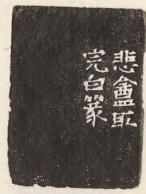 悲盦取
完白篆